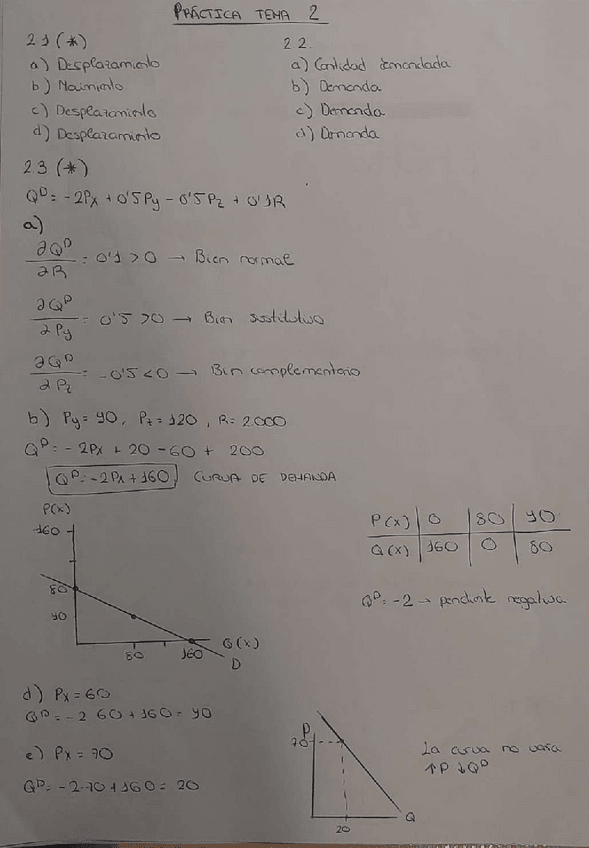 PRÁCTICA TEMA 2
2.1 (*)
a) Desplazamiento
b) Movimiento
c) Desplazamiento
d) Desplazamiento
2.2.
a) Cantidad demandada
b) Demanda
c) Demanda
d) Demanda
2.3 (*)
Qᴰ = -2Px + 0'5Py - 0'5Pz + 0'1R
a)
∂Qᴰ/∂R = 0'1 > 0 → Bien normal
∂Qᴰ/∂Py = 0'5 > 0 → Bien sustitutivo
∂Qᴰ/∂Pz = -0'5 < 0 → Bien complementario
b) Py = 40, Pz = 120, R = 2.000
Qᴰ = -2Px + 20 - 60 + 200
Qᴰ = -2Px + 160 CURVA DE DEMANDA
P(x)
160
80
40
80 160 Q(x)
D
P(x) 0 80 40
Q(x) 160 0 80
Qᴰ = -2 → pendiente negativa
d) Px = 60
Qᴰ = -2·60 + 160 = 40
e) Px = 70
Qᴰ = -2·70 + 160 = 20
P
70
20
Q
La curva no varía
↑P ↓Qᴰ